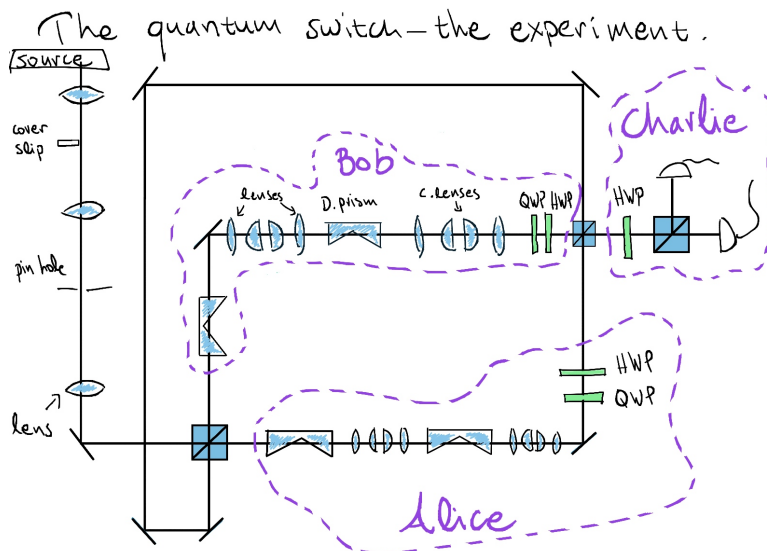 The quantum switch – the experiment.
source
cover
slip
pin hole
lens
Bob
lenses
D. prism
C. lenses
QWP HWP
Charlie
HWP
HWP
QWP
Alice